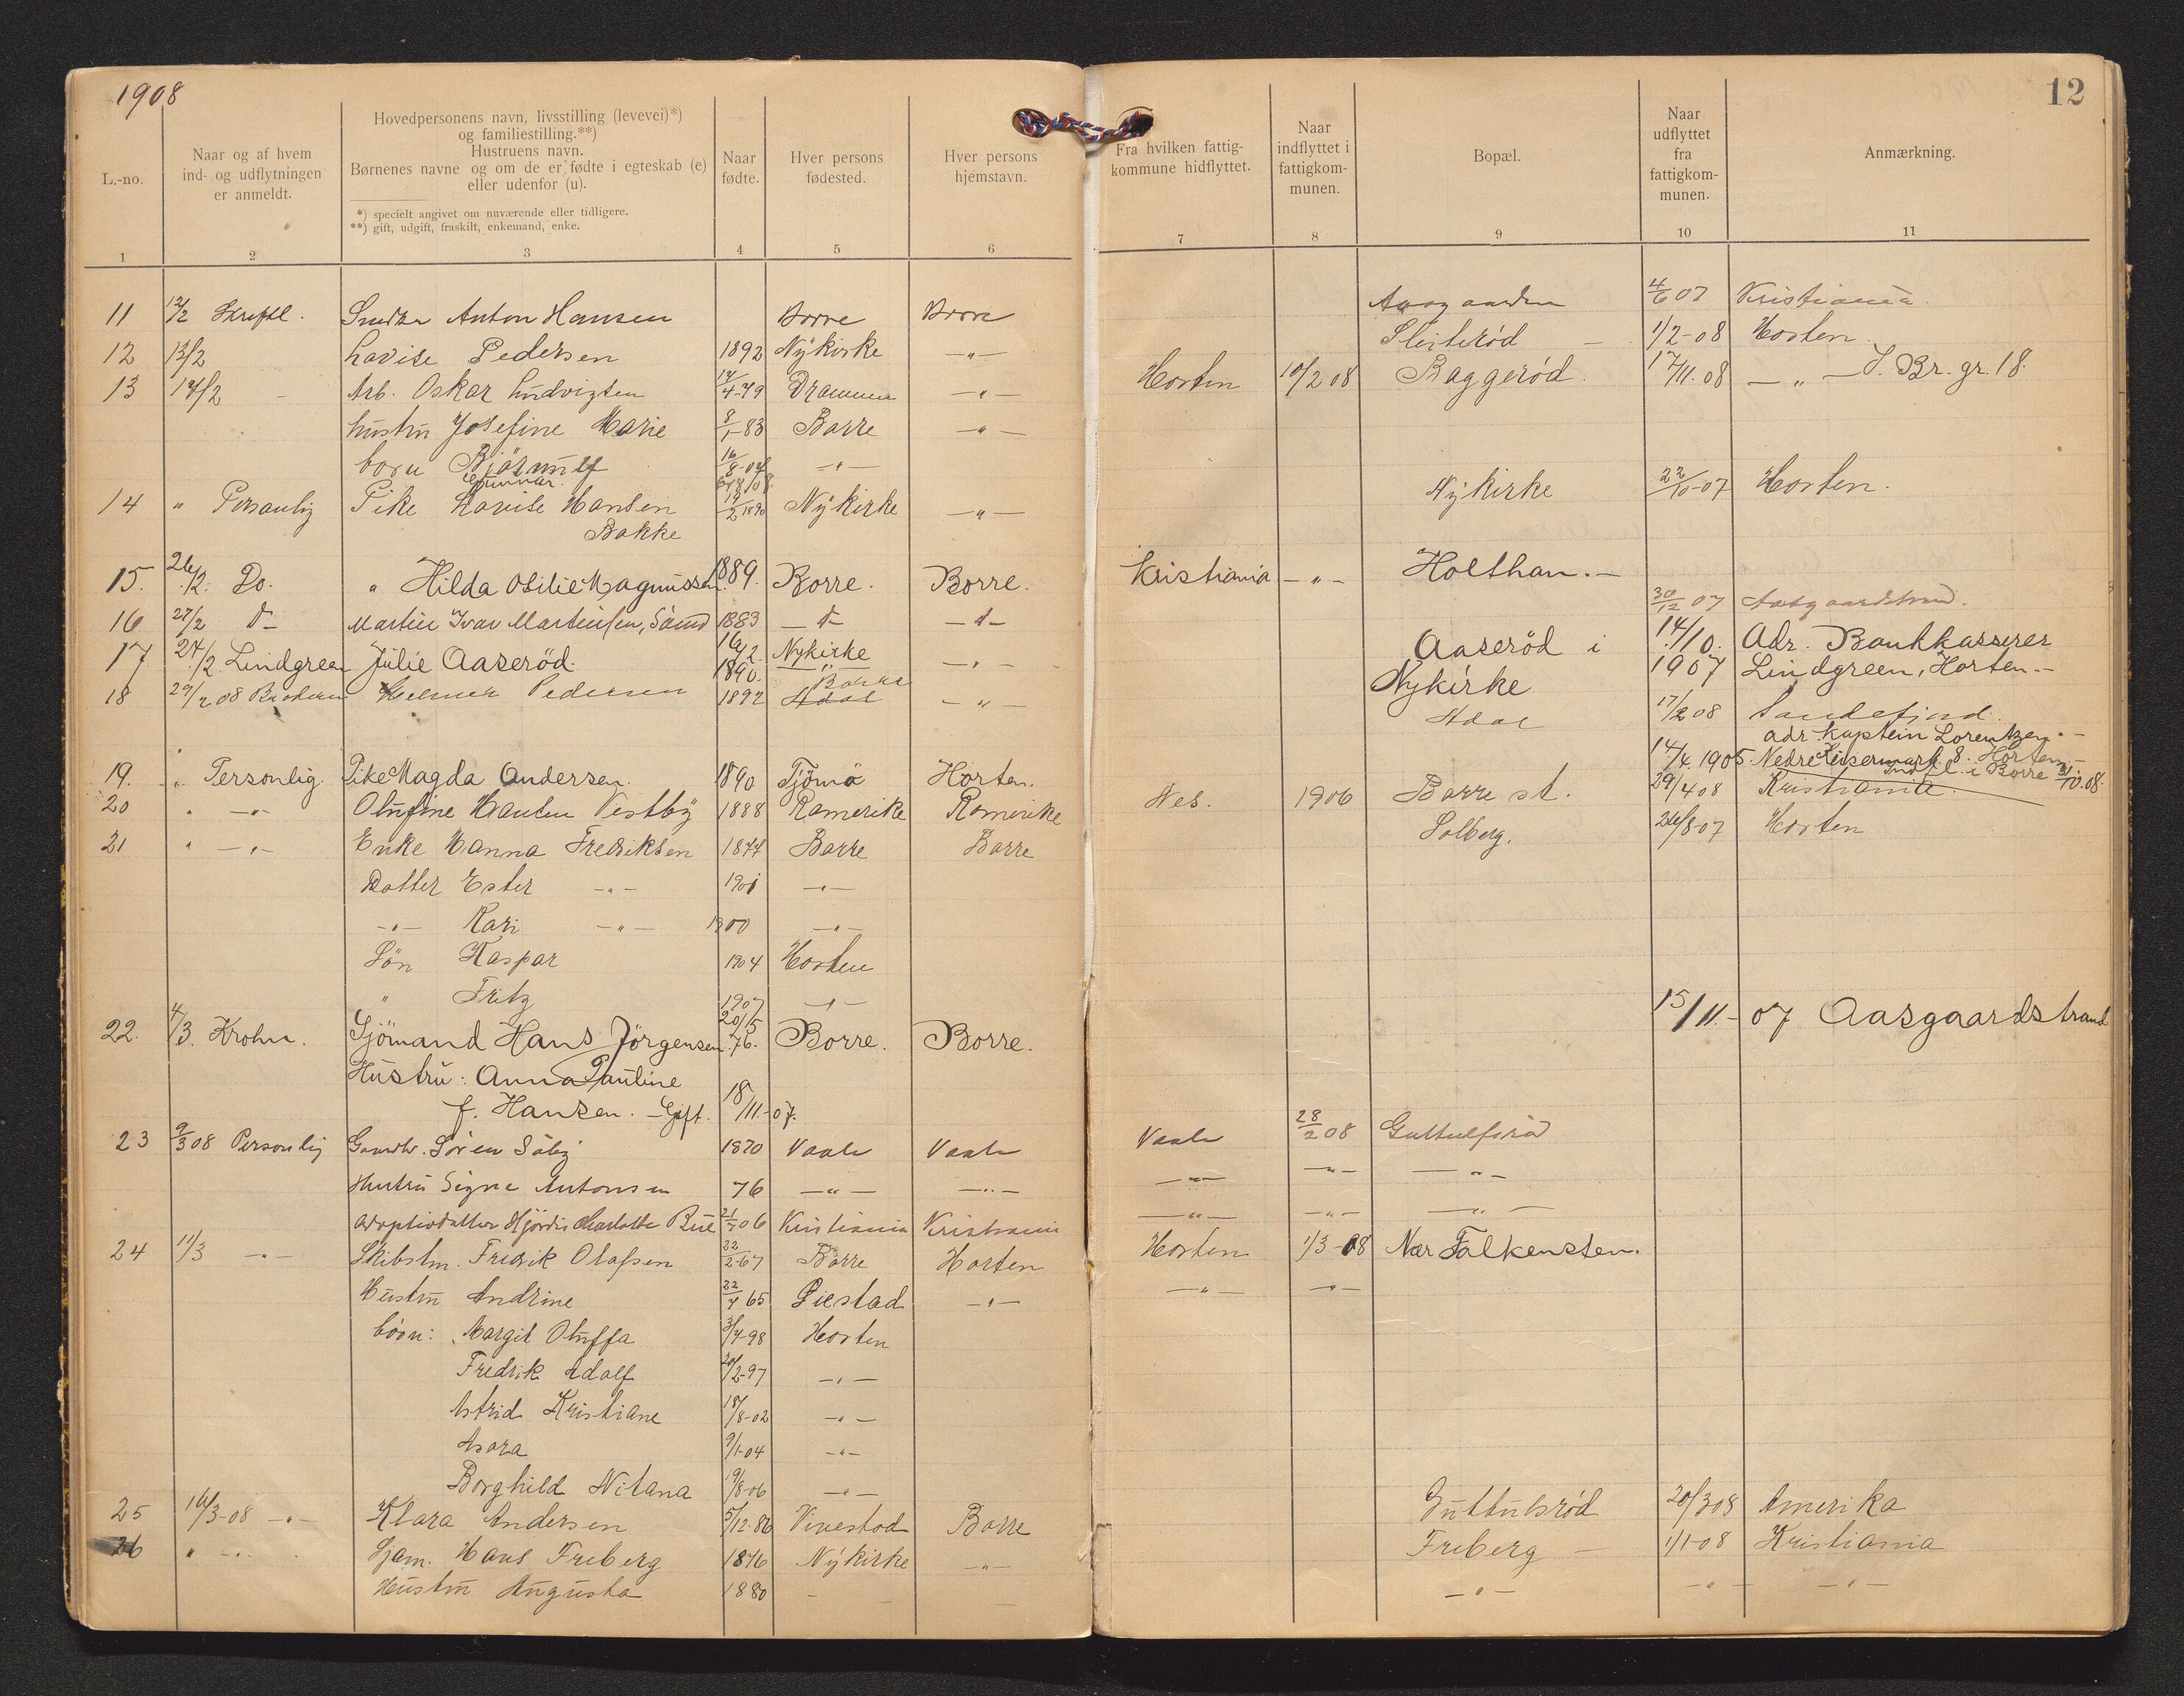 1908
12
L.-no.
Naar og af hvem
ind- og udflytningen
er anmeldt.
Hovedpersonens navn, livsstilling (levevei)*)
og familiestilling.**)
Hustruens navn.
Børnenes navne og om de er fødte i egteskab (e)
eller udenfor (u).
*) specielt angivet om nuværende eller tidligere.
**) gift, udgift, fraskilt, enkemand, enke.
Naar
fødte.
Hver persons
fødested.
Hver persons
hjemstavn.
Fra hvilken fattig-
kommune hidflyttet.
Naar
indflyttet i
fattigkom-
munen.
Bopæl.
Naar
udflyttet
fra
fattigkom-
munen.
Anmærkning.
1 2 3 4 5 6 7 8 9 10 11
11 12/2 Skriftl. Anton Hansen Borre Borre 4/6 07 Kristiania.
12 13/2 Lovise Pedersen 1892 Nykirke -"- Sleiterød - 1/2-08 Horten
13 14/2 - Arb. Oskar Ludvigsen 14/4-79 Drammen -"- Horten 10/2 08 Baggerød. 17/11.08 -"- S. Br. gr. 18.
hustru Josefine Marie 8/1-83 Borre -"-
born Bjørnulf 16/8-04 -"-
Gunnar. 6/8/08.
14 " Personlig Pike Lovise Hansen 19/2 1890 Nykirke -"- Nykirke 22/10-07 Horten.
Bakke
15. 26/2. Do. " Hilda Otilie Magnussen 1889. Borre. Borre. Kristiania -"- Holthan.-
16 27/2 d- Martin Ivar Martinsen, Sømd 1883 -d- -d- 30/12 07 Aasgaardstrand.
17 27/2. Lindgreen Julie Aaserød. 16/2. 1890. Nykirke -"- Aaserød i Nykirke 14/10. 1907 Adr. Bankkasserer
Lindgreen, Horten.-
18 29/2 08 Helmer Pedersen 1892 Adal Borre -"- Adal 17/2 08 Sandefjord.
adr. Kaptein Lorentzen.-
19. " Personlig. Pike Magda Andersen. 1890. Tjømø Horten. 14/4. 1905. Nedre Keisermark. 8. Horten.-
Indfl. i Borre 31/10.08.
20 " -"- Olufine Hansen Vestby 1888 Romerike Romerike Nes. 1906 Borre st. 29/4 08 Kristiania.
21 " -"- Enke Hanna Fredriksen 1874 Borre Borre Solberg. 26/8-07 Horten
Datter Ester -"- 1901 -"-
-"- Kari -"- 1900 -"-
Søn Kaspar 1904 Horten
" Fritz 1907 -"-
22. 4/3. Krohn. Sjømand Hans Jørgensen 20/5 76. Borre. Borre. 15/11.-07 Aasgaardstrand
Hustru: Anna Pauline
f. Hansen. - Gift. 18/11.-07.
23 9/3 08 Personlig Gaardbr. Søren Søby 1870 Vaale Vaale Vaale 28/2 08
Hustru Signe Antonsen 76 -"- -"- -"- -"- -"-
Adoptivdatter Hjørdis Charlotte Bue 21/7 06 Kristiania Kristiania -"- -"- -"-
24 11/3 -"- Skibstm. Fredrik Olafsen 22/2-67 Borre Horten Horten 1/3-08 Nær Falkensten.
Hustru Andrine 22/4 65 -"- -"- -"-
børn: Margit Oluffa 3/4-98 Horten
Fredrik Adolf 20/2-97 -"-
Astrid Kristiane 18/8-02 -"-
Asora 9/1-04 -"-
Borghild Nitana 19/8-06 -"-
25 16/3-08 -"- Klara Andersen 5/12-86 Vivestad Borre Guttulsrød 20/3 08 Amerika
26 " -"- Sjøm. Hans Freberg 1876 Nykirke -"- Freberg - 1/1-08 Kristiania
Hustru Augusta 1880 - - -"- -"- -"-